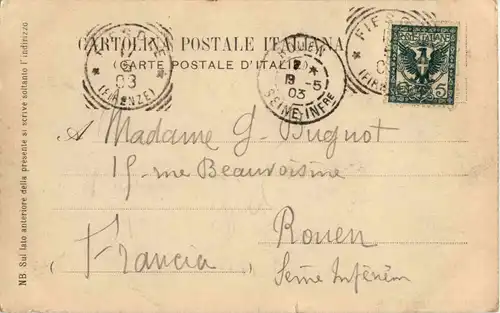 CARTOLINA POSTALE ITALIANA
(CARTE POSTALE D'ITALIE)
FIESOLE
03
(FIRENZE)
ROUEN
19 - 5
03
SEINE-INFRE
FIESOLE
(FIRENZE)
POSTE ITALIANE
5
NB Sul lato anteriore della presente si scrive soltanto l'indirizzo
A Madame G. Bugnot
15 rue Beauvoisine
Rouen
(Francia)
Seine Inférre